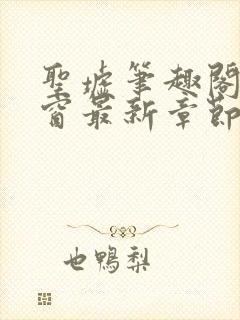 聖墟筆趣閣
窗最新章節
也鴨梨